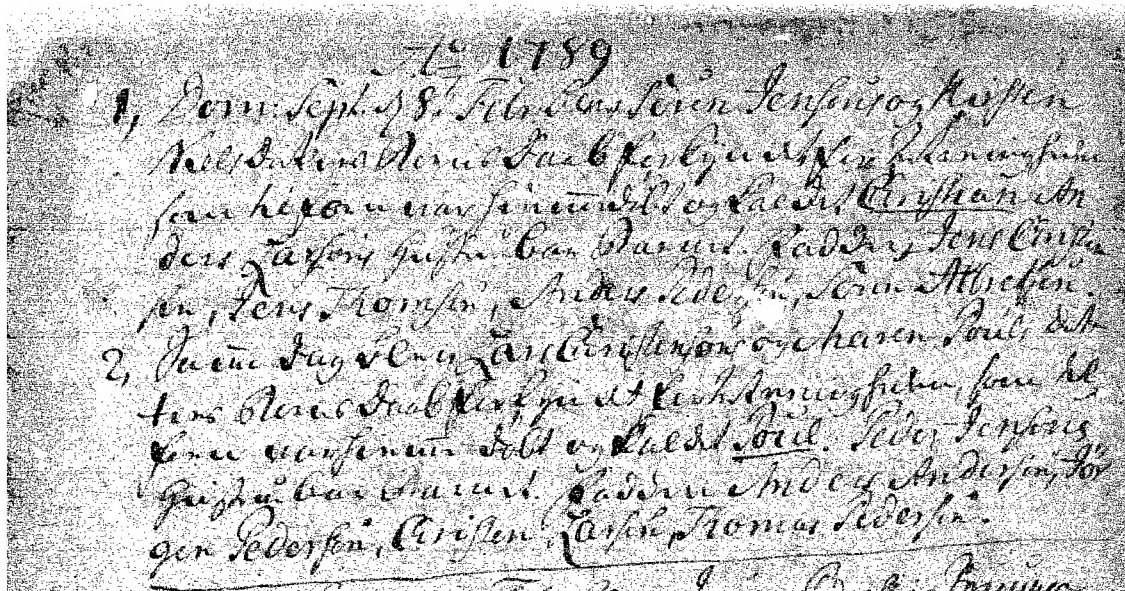 Ao 1789
1, Dom: Sept. d 8. Febr blev Søren Jensens og Kirsten
Niels Daters Barns Daab forkyndet for Meenigheden
som hiemme var hiemmedøbt og kaldet Christian An
ders Larsens Hustru bar Barnet. Faddere Jens Christen
sen, Jens Thomsen, Anders Pedersen, Søren
2, Samme Dag blev Lars Christensens og Maren Pouls dat
ters Barns Daab forkyndet for Meenigheden, som
var hiemme døbt og kaldet Poul. Peder Jensens
Hustru bar Barnet. Faddere Anders Andersen, Jør
gen Pedersen, Christen Larsen, Thomas Pedersen.